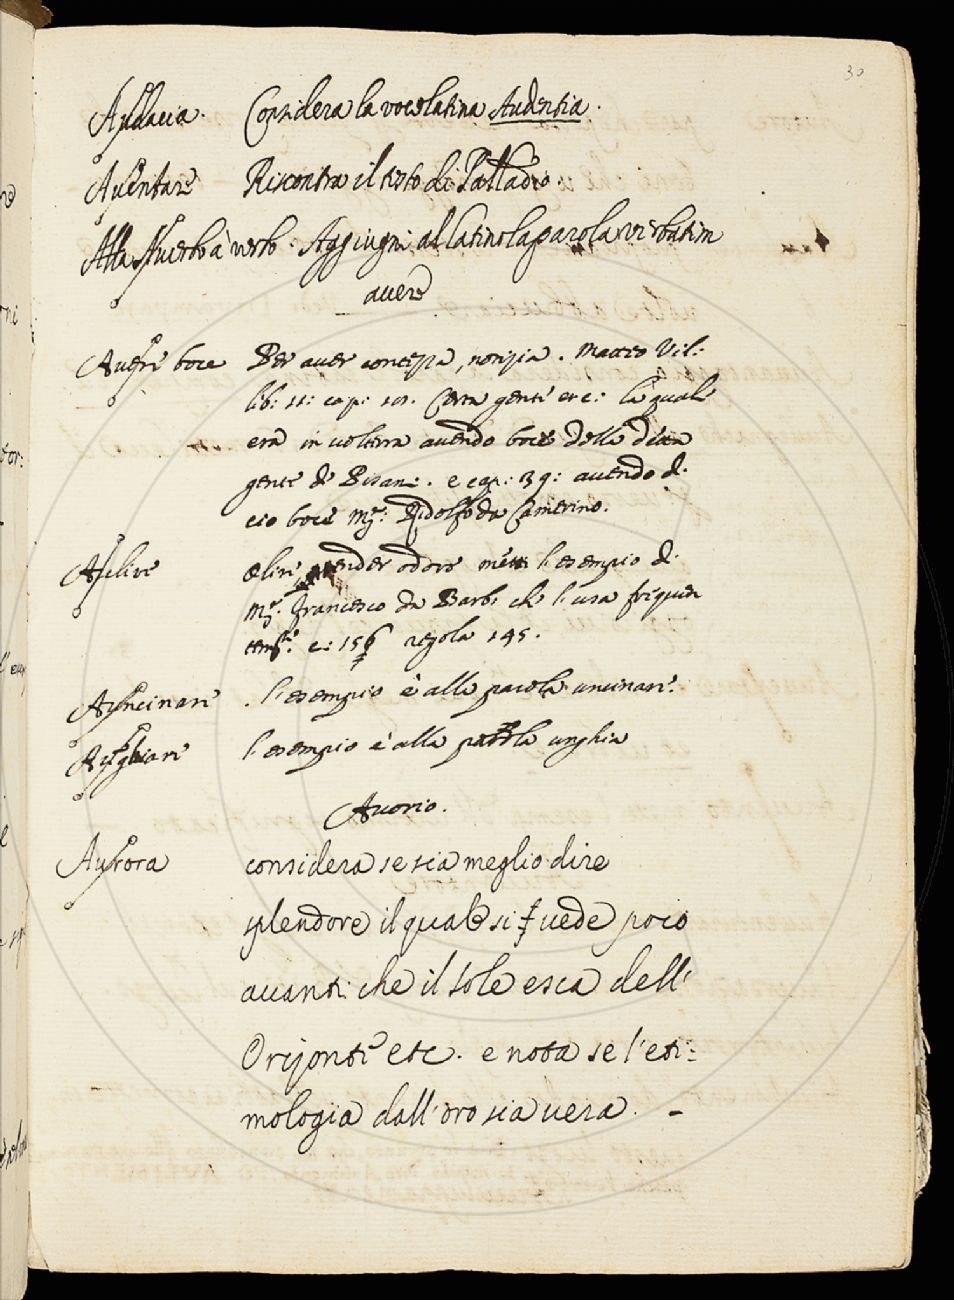 30
Audacia. Considera la voce latina Audentia.
Auentare Riscontra il testo di Palladio.
Alla A uerbo à uerbo. Aggiugni al latino la parola verbatim
auere
Auere boce Per auer contezza, notizia. Matteo Vil:
lib: 11: cap: 101. Certa gente etc: la quale
era in uolterra auendo boce della detta
gente de Pisani. e cap: 39: auendo di
cio boce Mr. Ridolfo da Camerino.
Aulire olire render odore metti l'esempio di
Mr. Francesco da Barb. che l'usa frequen
temte. c: 156 regola 145.
Auncinare. l'esempio è alla parola uncinare.
Aunghiare l'esempio è alla parola unghia
Auorio.
Aurora considera se sia meglio dire
splendore il quale si uede poco
auanti che il sole esca dell'
Orizonte etc. e nota se l'eti:
mologia dall'oro sia uera. -